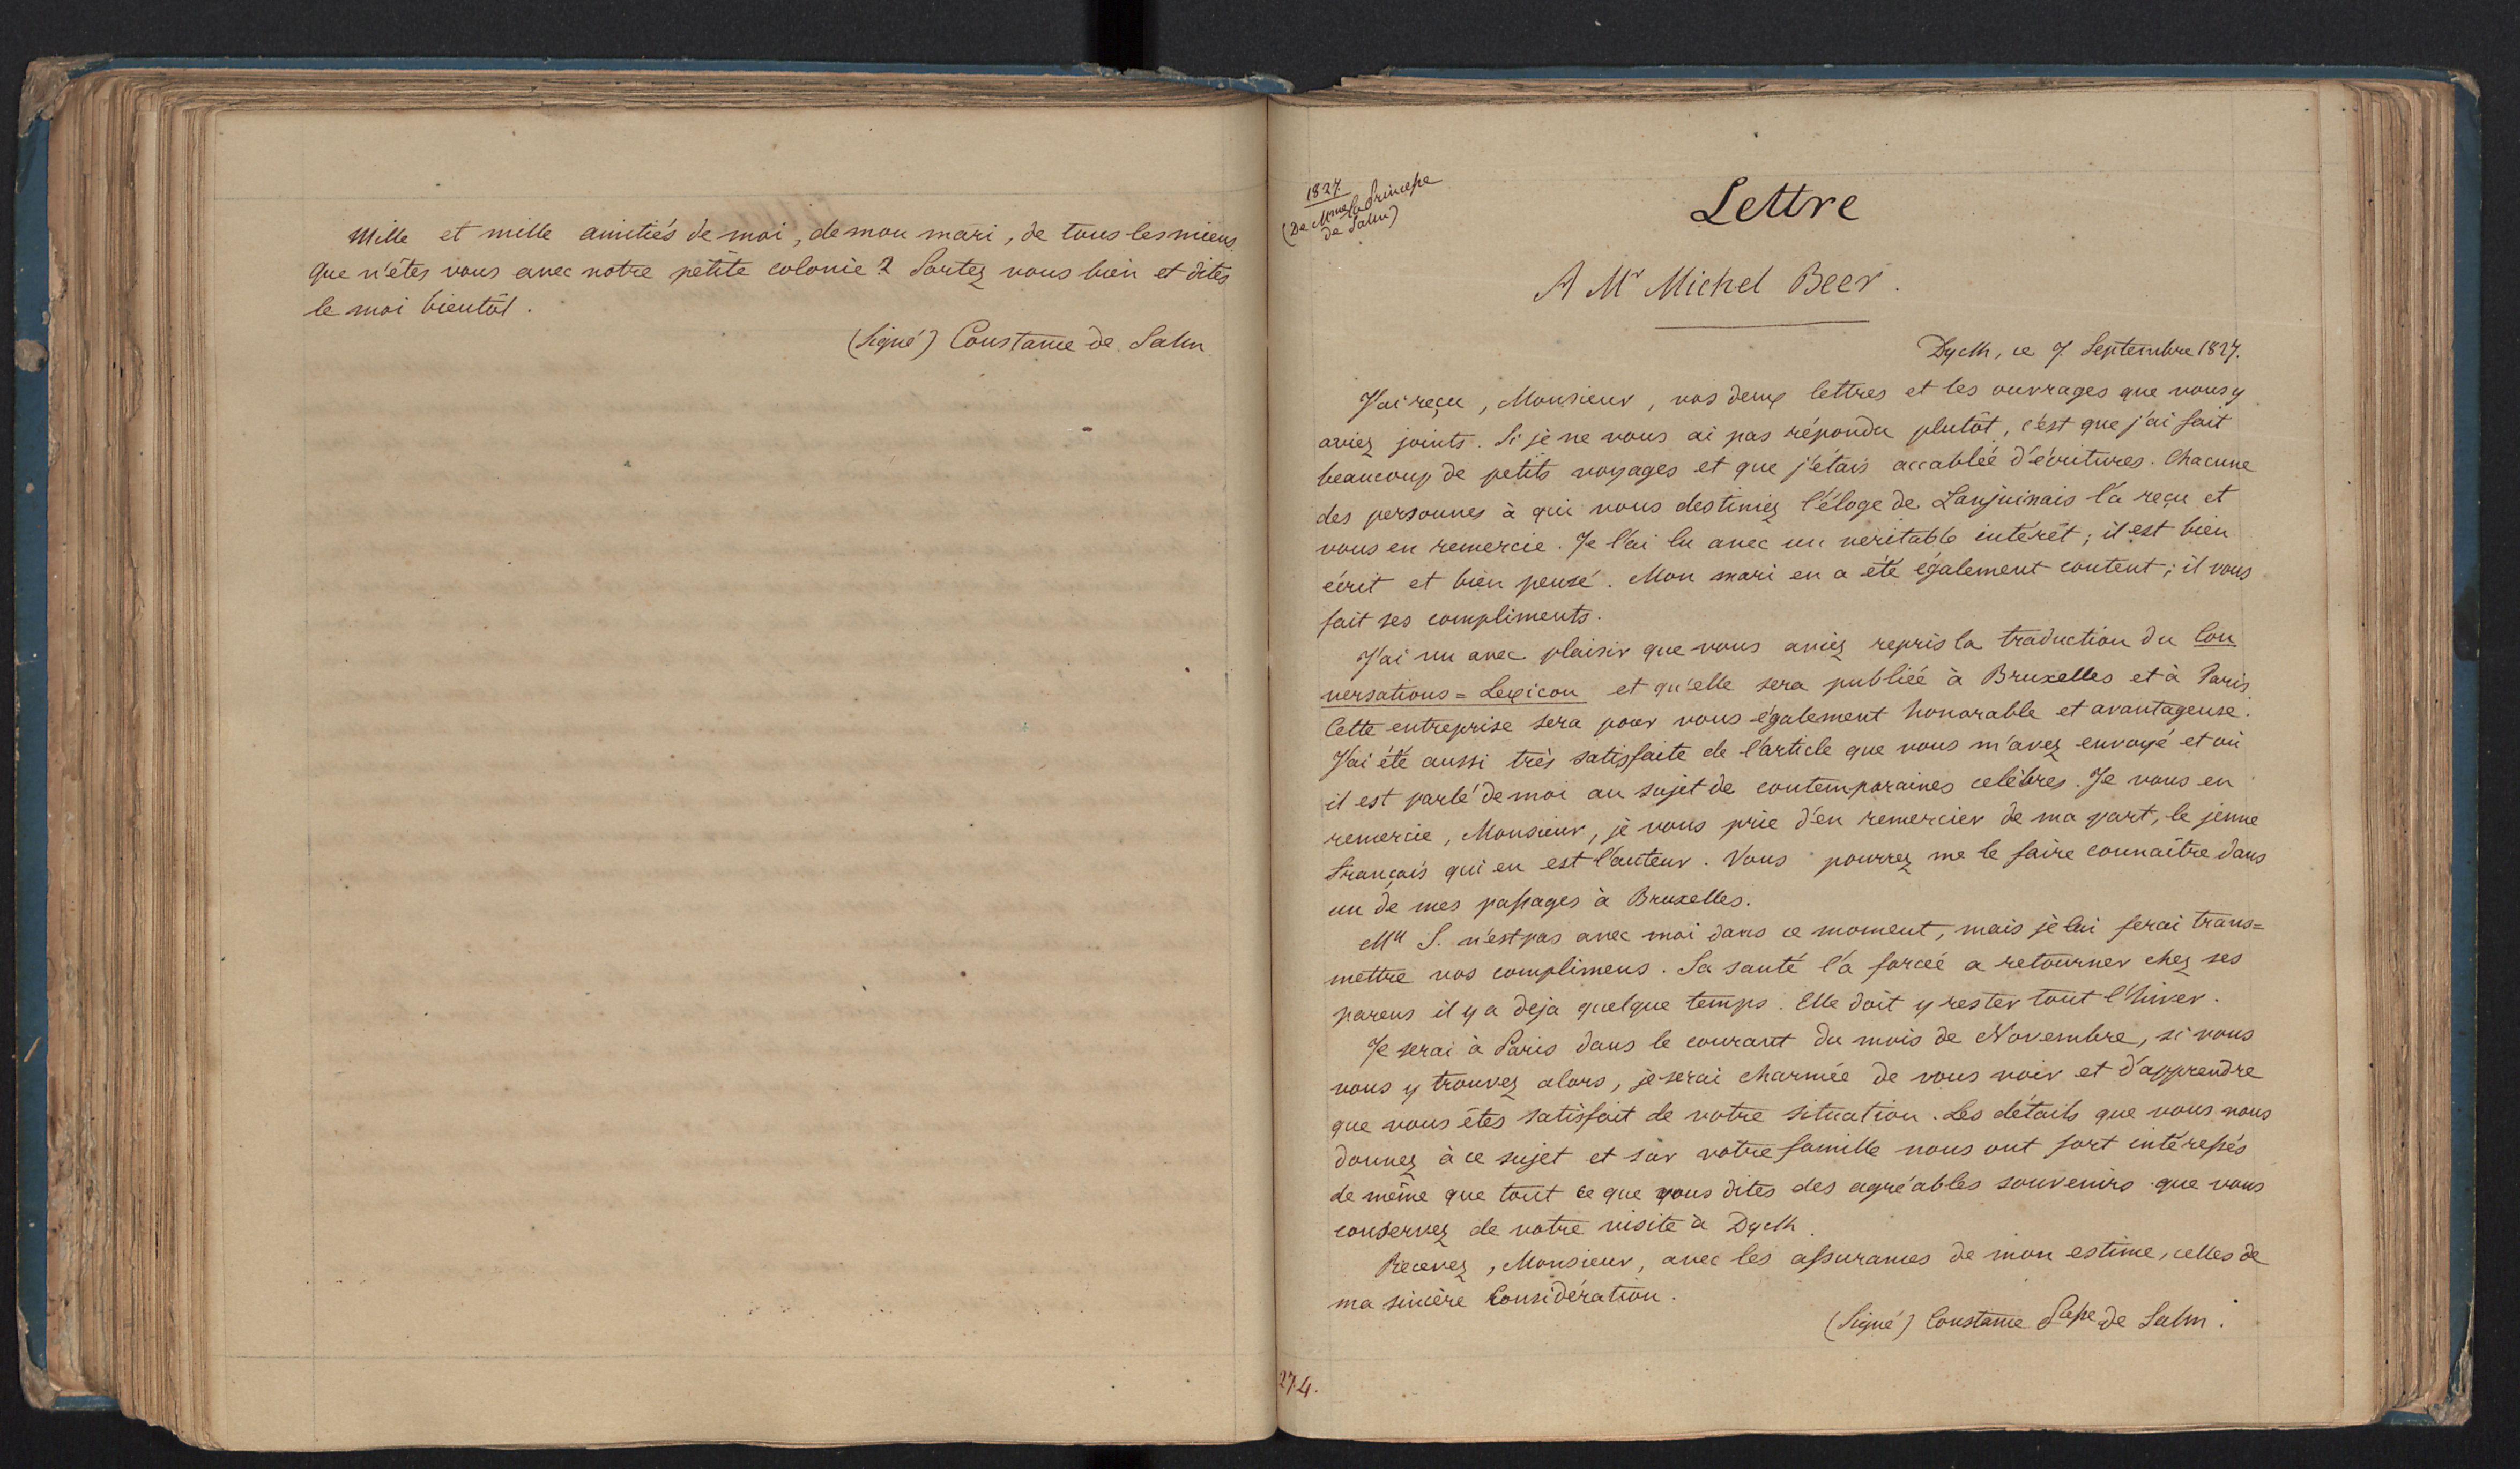 Mille et mille amitiés de moi, de mon mari, de tous les miens
Que n'êtes vous avec notre petite colonie ? Portez vous bien et dites
le moi bientôt.
(Signé) Constance de Salm
1827.
(De Mme la Princesse
de Salm)
Lettre
A Mr Michel Beer.
Dyck, ce 7 Septembre 1827.
J'ai reçu, Monsieur, vos deux lettres et les ouvrages que vous y
aviez joints. Si je ne vous ai pas répondu plutôt, c'est que j'ai fait
beaucoup de petits voyages et que j'étais accablée d'écritures. Chacune
des personnes à qui vous destiniez l'éloge de Lanjuinais l'a reçu et
vous en remercie. Je l'ai lu avec un veritable intérêt ; il est bien
écrit et bien pensé. Mon mari en a été également content ; il vous
fait ses compliments.
J'ai vu avec plaisir que vous aviez repris la traduction du Con
versations=Lexicon et qu'elle sera publiée à Bruxelles et à Paris.
Cette entreprise sera pour vous également honorable et avantageuse.
J'ai été aussi très satisfaite de l'article que vous m'avez envoyé et où
il est parlé de moi au sujet de contemporaines celèbres. Je vous en
remercie, Monsieur, je vous prie d'en remercier de ma part, le jeune
français qui en est l'auteur. Vous pourrez me le faire connaître dans
un de mes passages à Bruxelles.
Mlle S. n'est pas avec moi dans ce moment, mais je lui ferai trans=
mettre vos complimens. Sa santé l'a forcée a retourner chez ses
parens il y a deja quelque temps. Elle doit y rester tout l'hiver.
Je serai à Paris dans le courant du mois de Novembre, si vous
vous y trouvez alors, je serai charmée de vous voir et d'apprendre
que vous êtes satisfait de votre situation. Les détails que vous nous
donnez à ce sujet et sur votre famille nous ont fort intéressés
de même que tout ce que vous dites des agréables souvenirs que vous
conservez de votre visite à Dyck.
Recevez, Monsieur, avec les assurances de mon estime, celles de
ma sincère Considération.
(Signé) Constance Pcesse de Salm.
274.